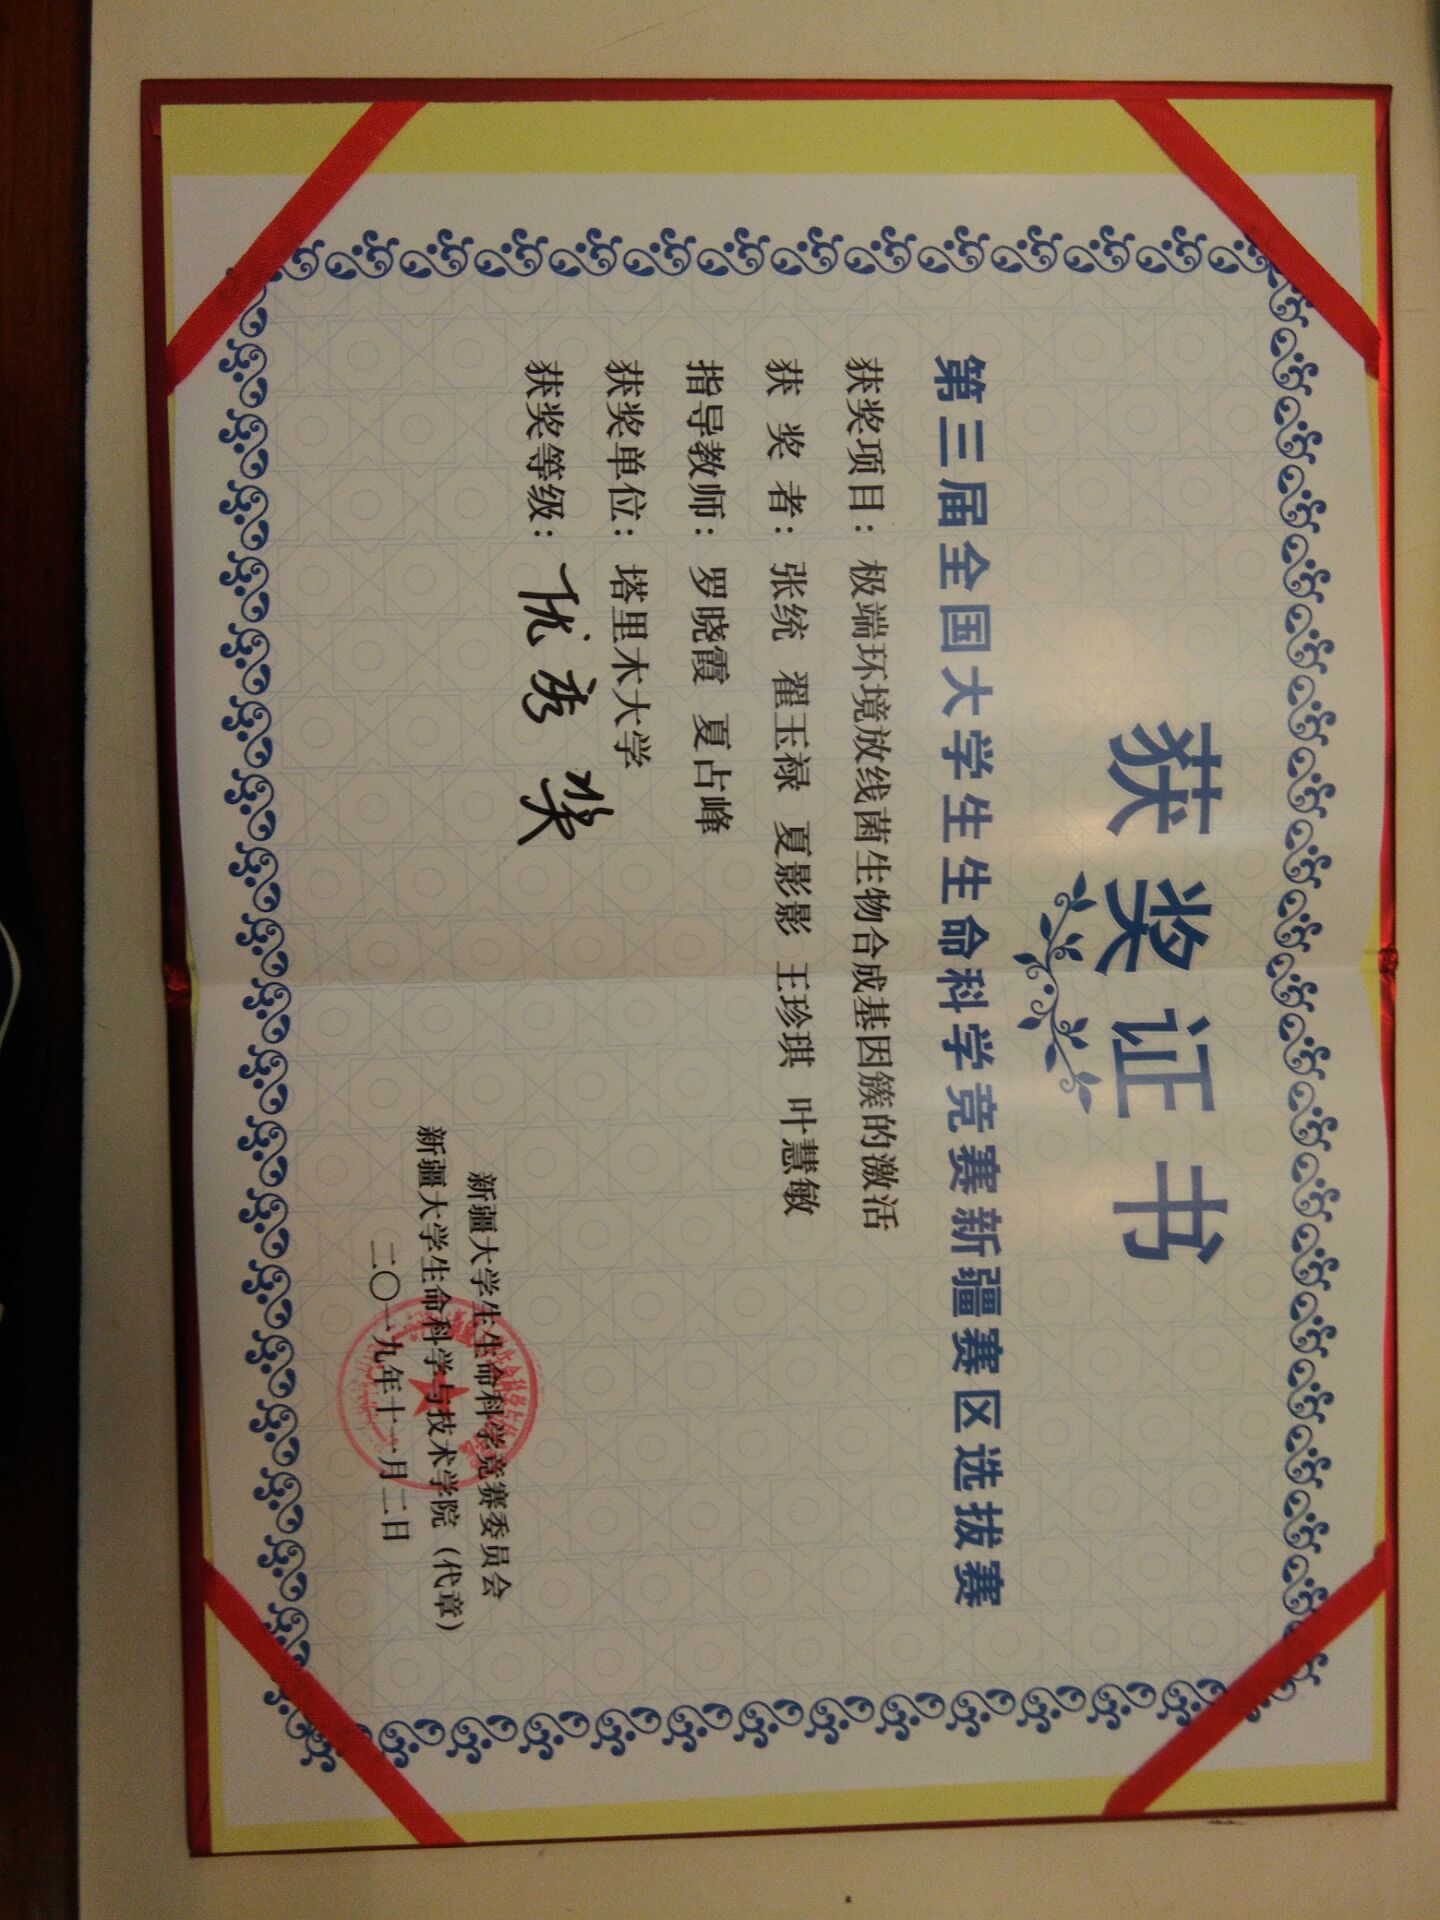 获奖证书
第三届全国大学生生命科学竞赛新疆赛区选拔赛
获奖项目：极端环境放线菌生物合成基因簇的激活
获 奖 者：张统 翟玉禄 夏影影 王珍琪 叶慧敏
指导教师：罗晓霞 夏占峰
获奖单位：塔里木大学
获奖等级：优秀奖
新疆大学生生命科学竞赛委员会
新疆大学生命科学与技术学院（代章）
二〇一九年十一月二日